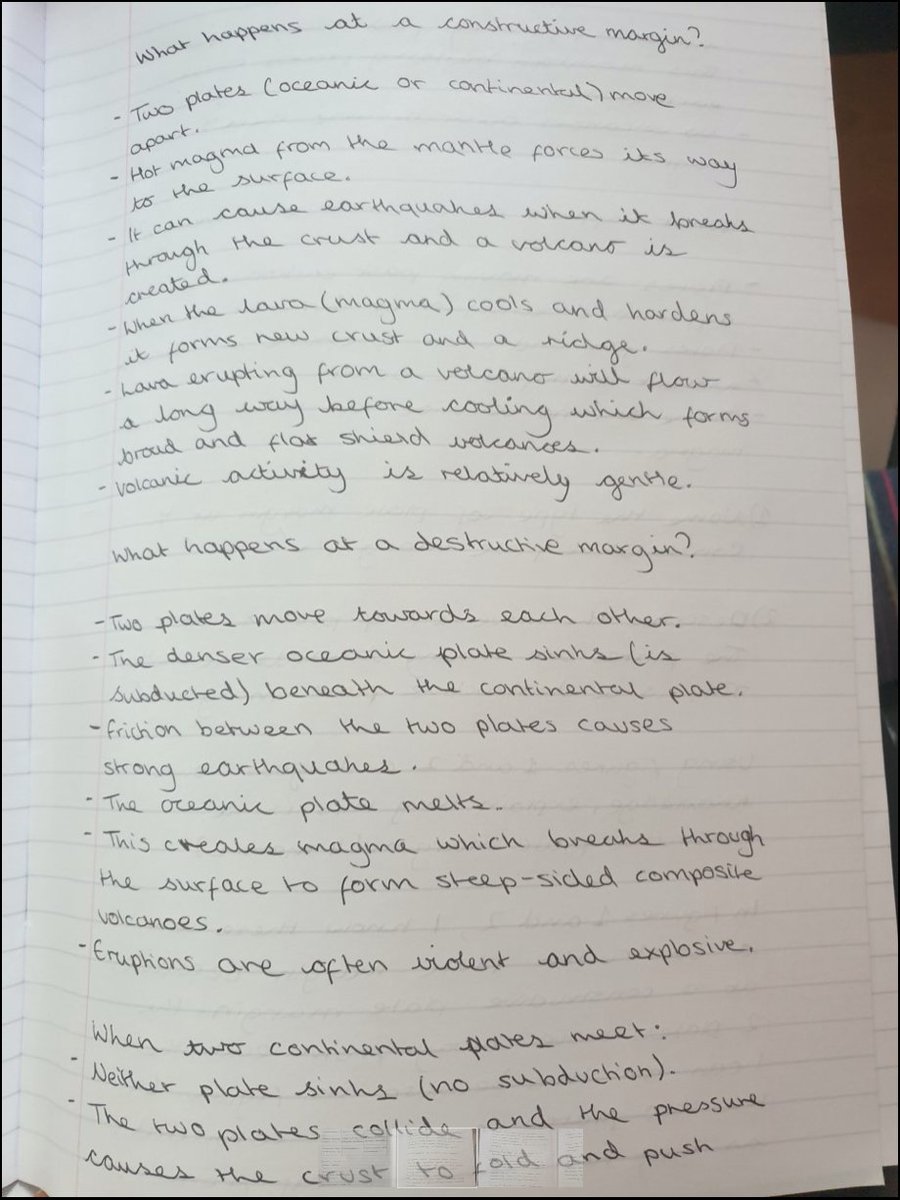 What happens at a constructive margin?
- Two plates (oceanic or continental) move
apart.
- Hot magma from the mantle forces its way
to the surface.
- It can cause earthquakes when it breaks
through the crust and a volcano is
created.
- When the lava (magma) cools and hardens
it forms new crust and a ridge.
- Lava erupting from a volcano will flow
a long way before cooling which forms
broad and flat shield volcanoes.
- Volcanic activity is relatively gentle.
What happens at a destructive margin?
- Two plates move towards each other.
- The denser oceanic plate sinks (is
subducted) beneath the continental plate.
- friction between the two plates causes
strong earthquakes.
- The oceanic plate melts.
- This creates magma which breaks through
the surface to form steep-sided composite
volcanoes.
- Eruptions are often violent and explosive.
When two continental plates meet:
- Neither plate sinks (no subduction).
- The two plates collide and the pressure
causes the crust to fold and push